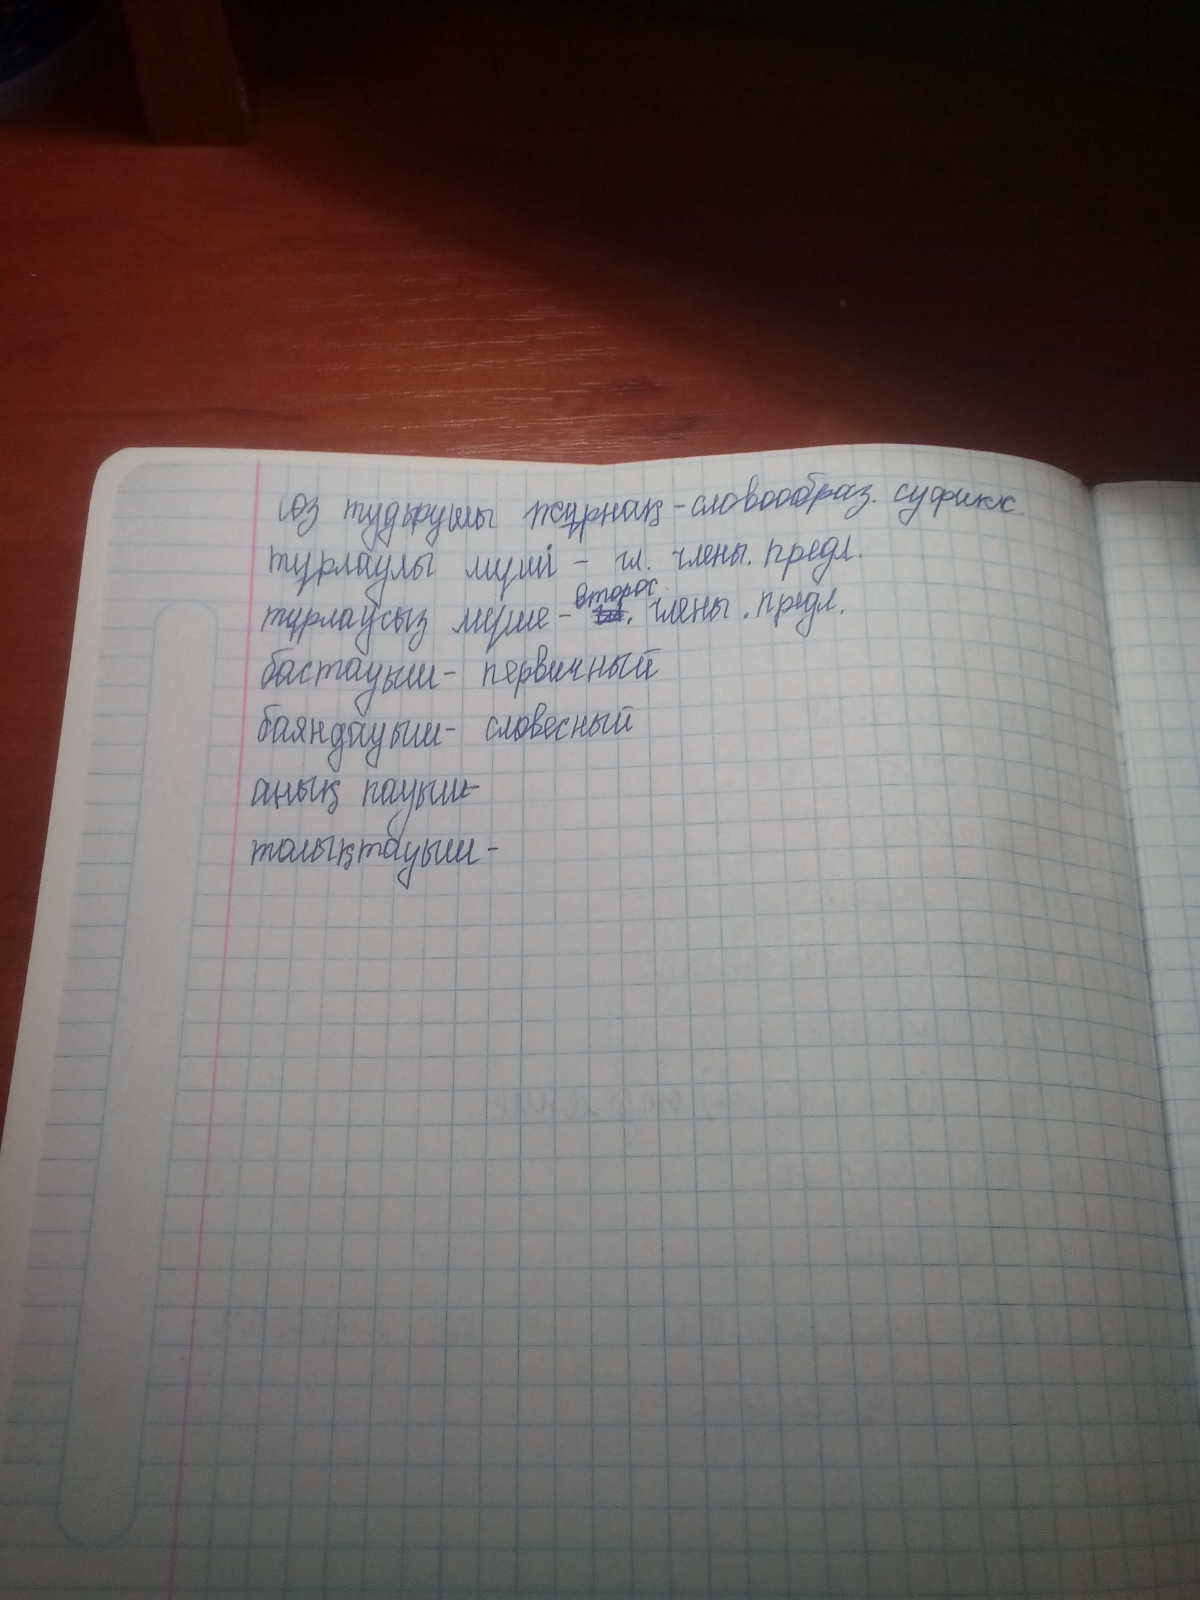 соз тудырушы жұрнақ - словообраз. суфикс.
тұрлаулы мүше - гл. члены. предл.
тұрлаусыз мүше - второс. члены. предл.
бастауыш - первичный
баяндауыш - словесный
анық пауыш -
толықтауыш -